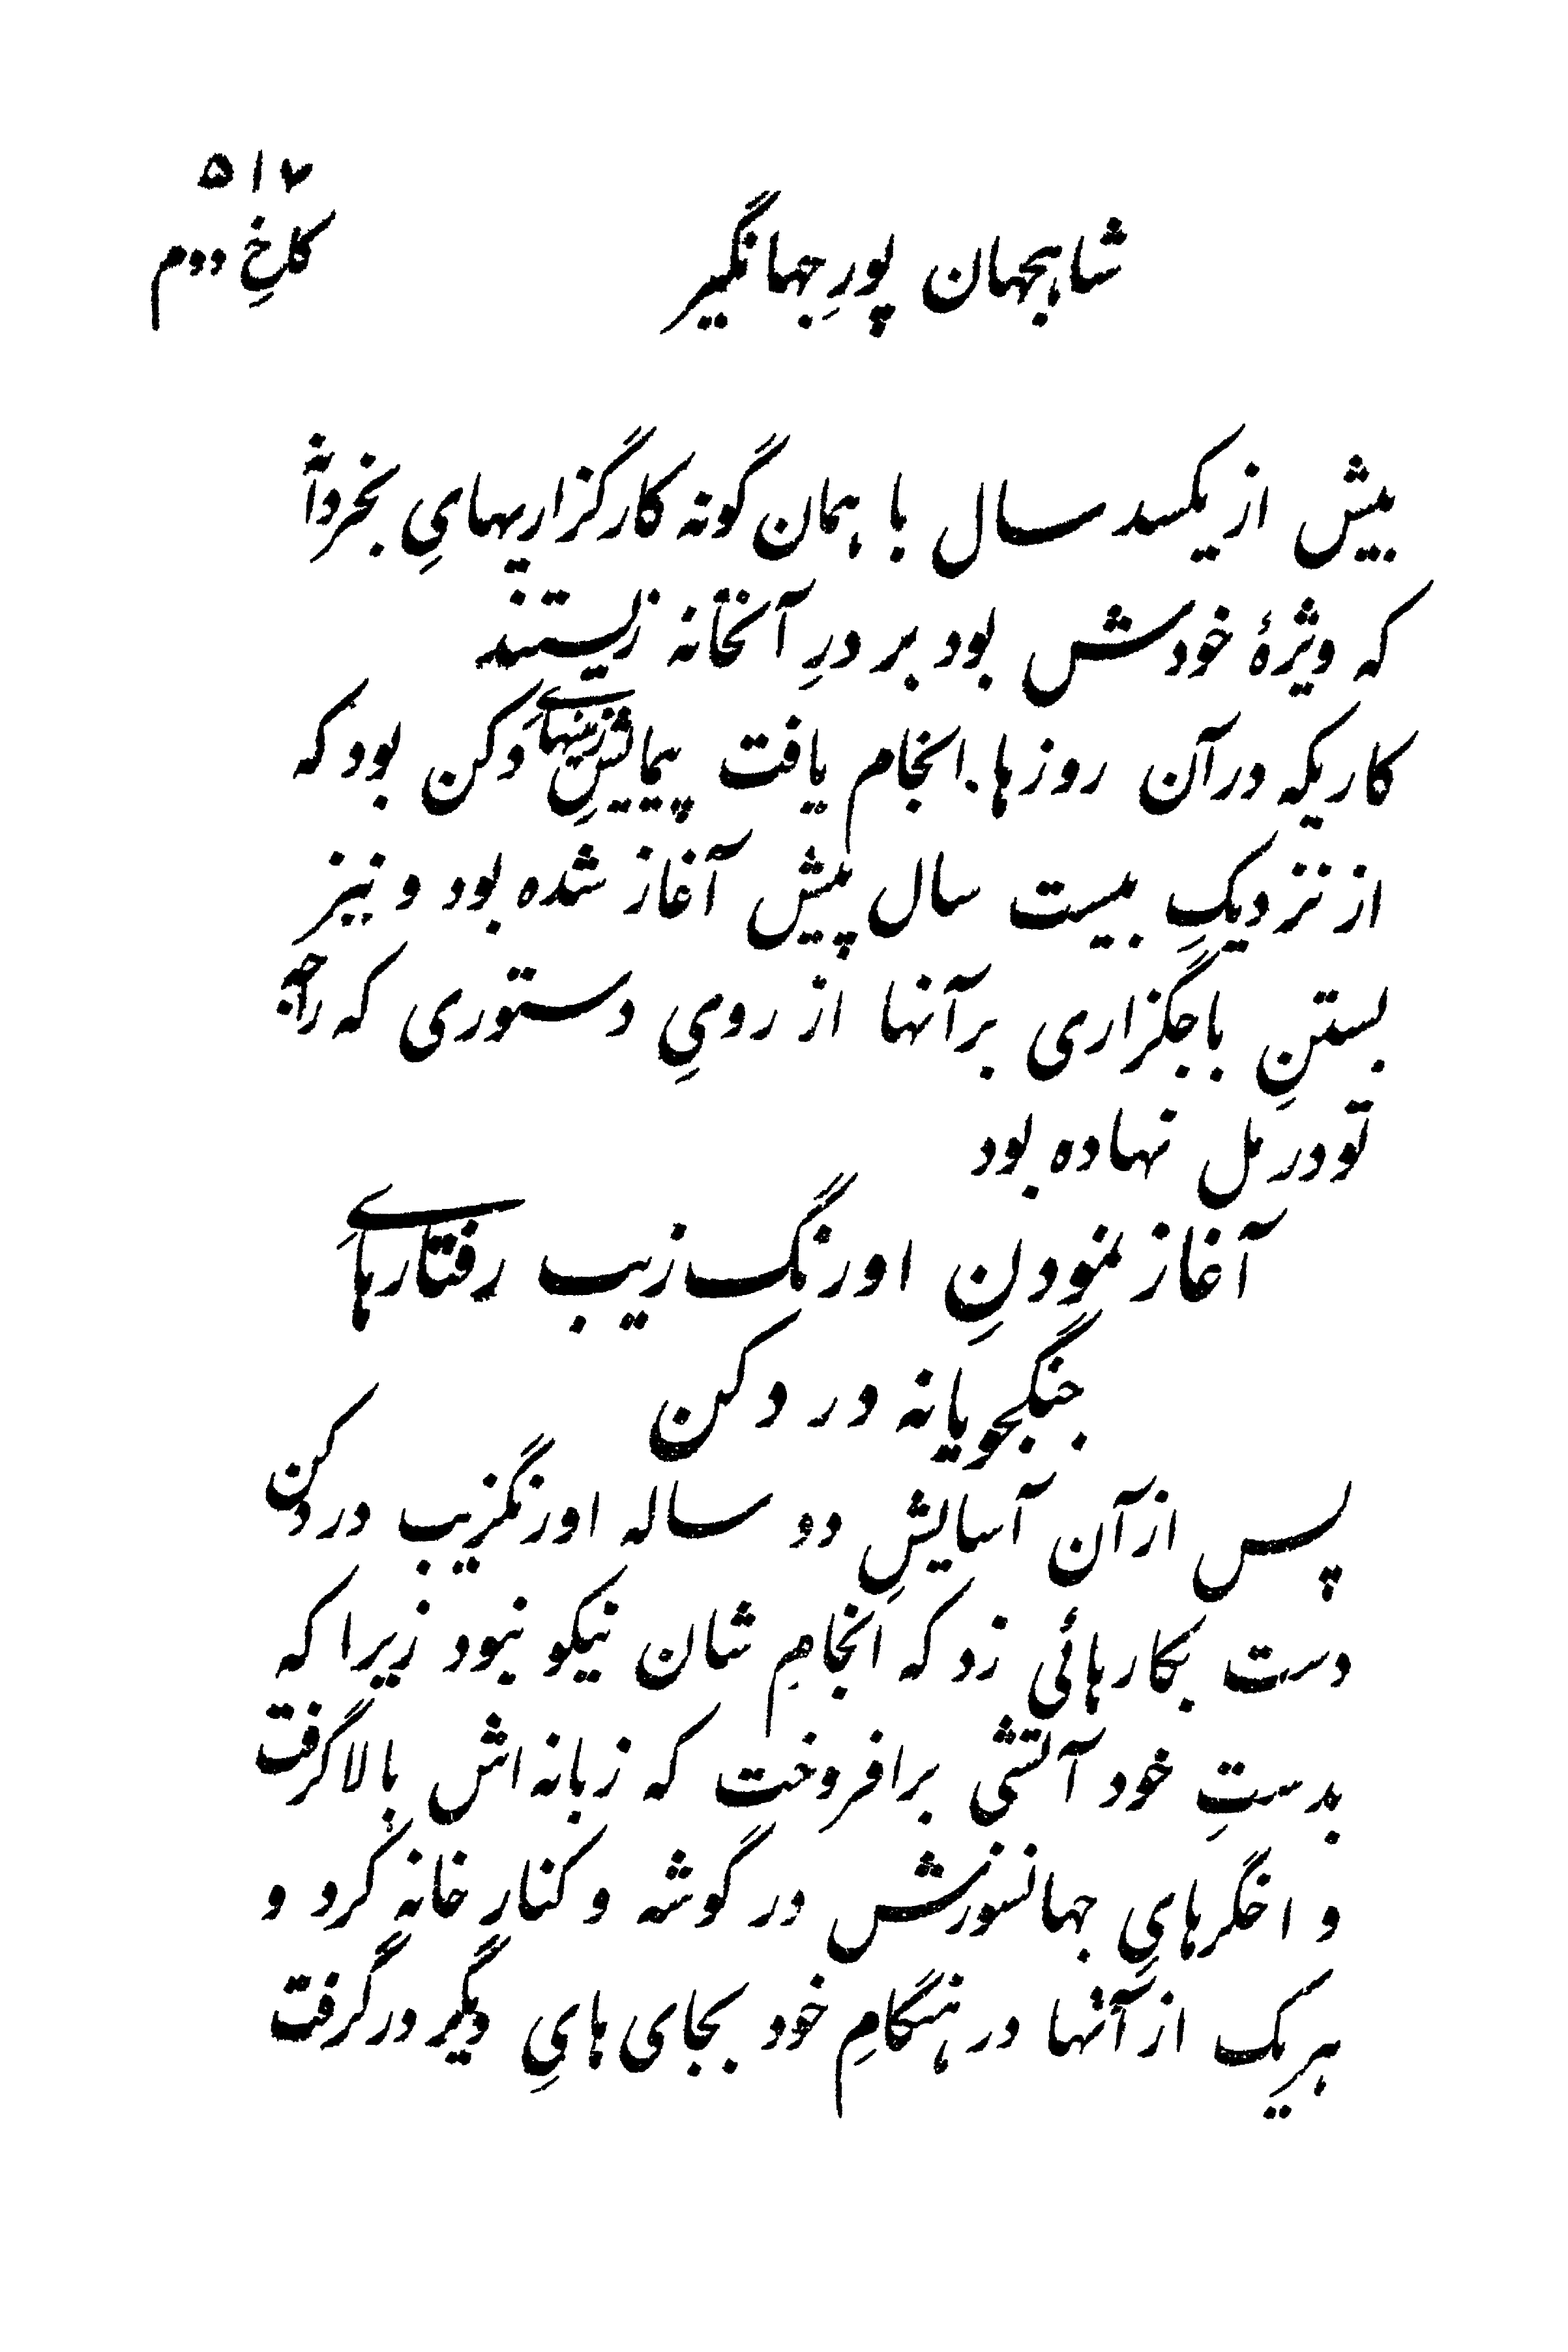 ۵۱۷
کاخِ دوم
شاهجهان پورِ جهانگیر
بیش از یکسد سال با همان گونه کارگزاریهایِ بخردانه
که ویژهٔ خودش بود بر درِ آنخانه زیستند
کاریکه در آن روزها انجام یافت پیمایشِ زمینهایِ دکن بود که
از نزدیکِ بیست سال پیش آغاز شده بود و نیز
بستنِ باجگزاری بر آنها از رویِ دستوری که راجه
تودر مل نهاده بود
آغاز نمودنِ اورنگ زیب رفتارهایِ
جنگجویانه در دکن
پس از آن آسایشِ دو ساله اورنگزیب در دکن
دست بکارهائی زد که انجامِ شان نیکو نبود زیرا که
بدستِ خود آتشی برافروخت که زبانه‌اش بالا گرفت
و اخگرهایِ جهانسوزش در گوشه و کنارِ خانه گرد و
هر یک از آنها در هنگامِ خود بجای هایِ دیگر درگرفت